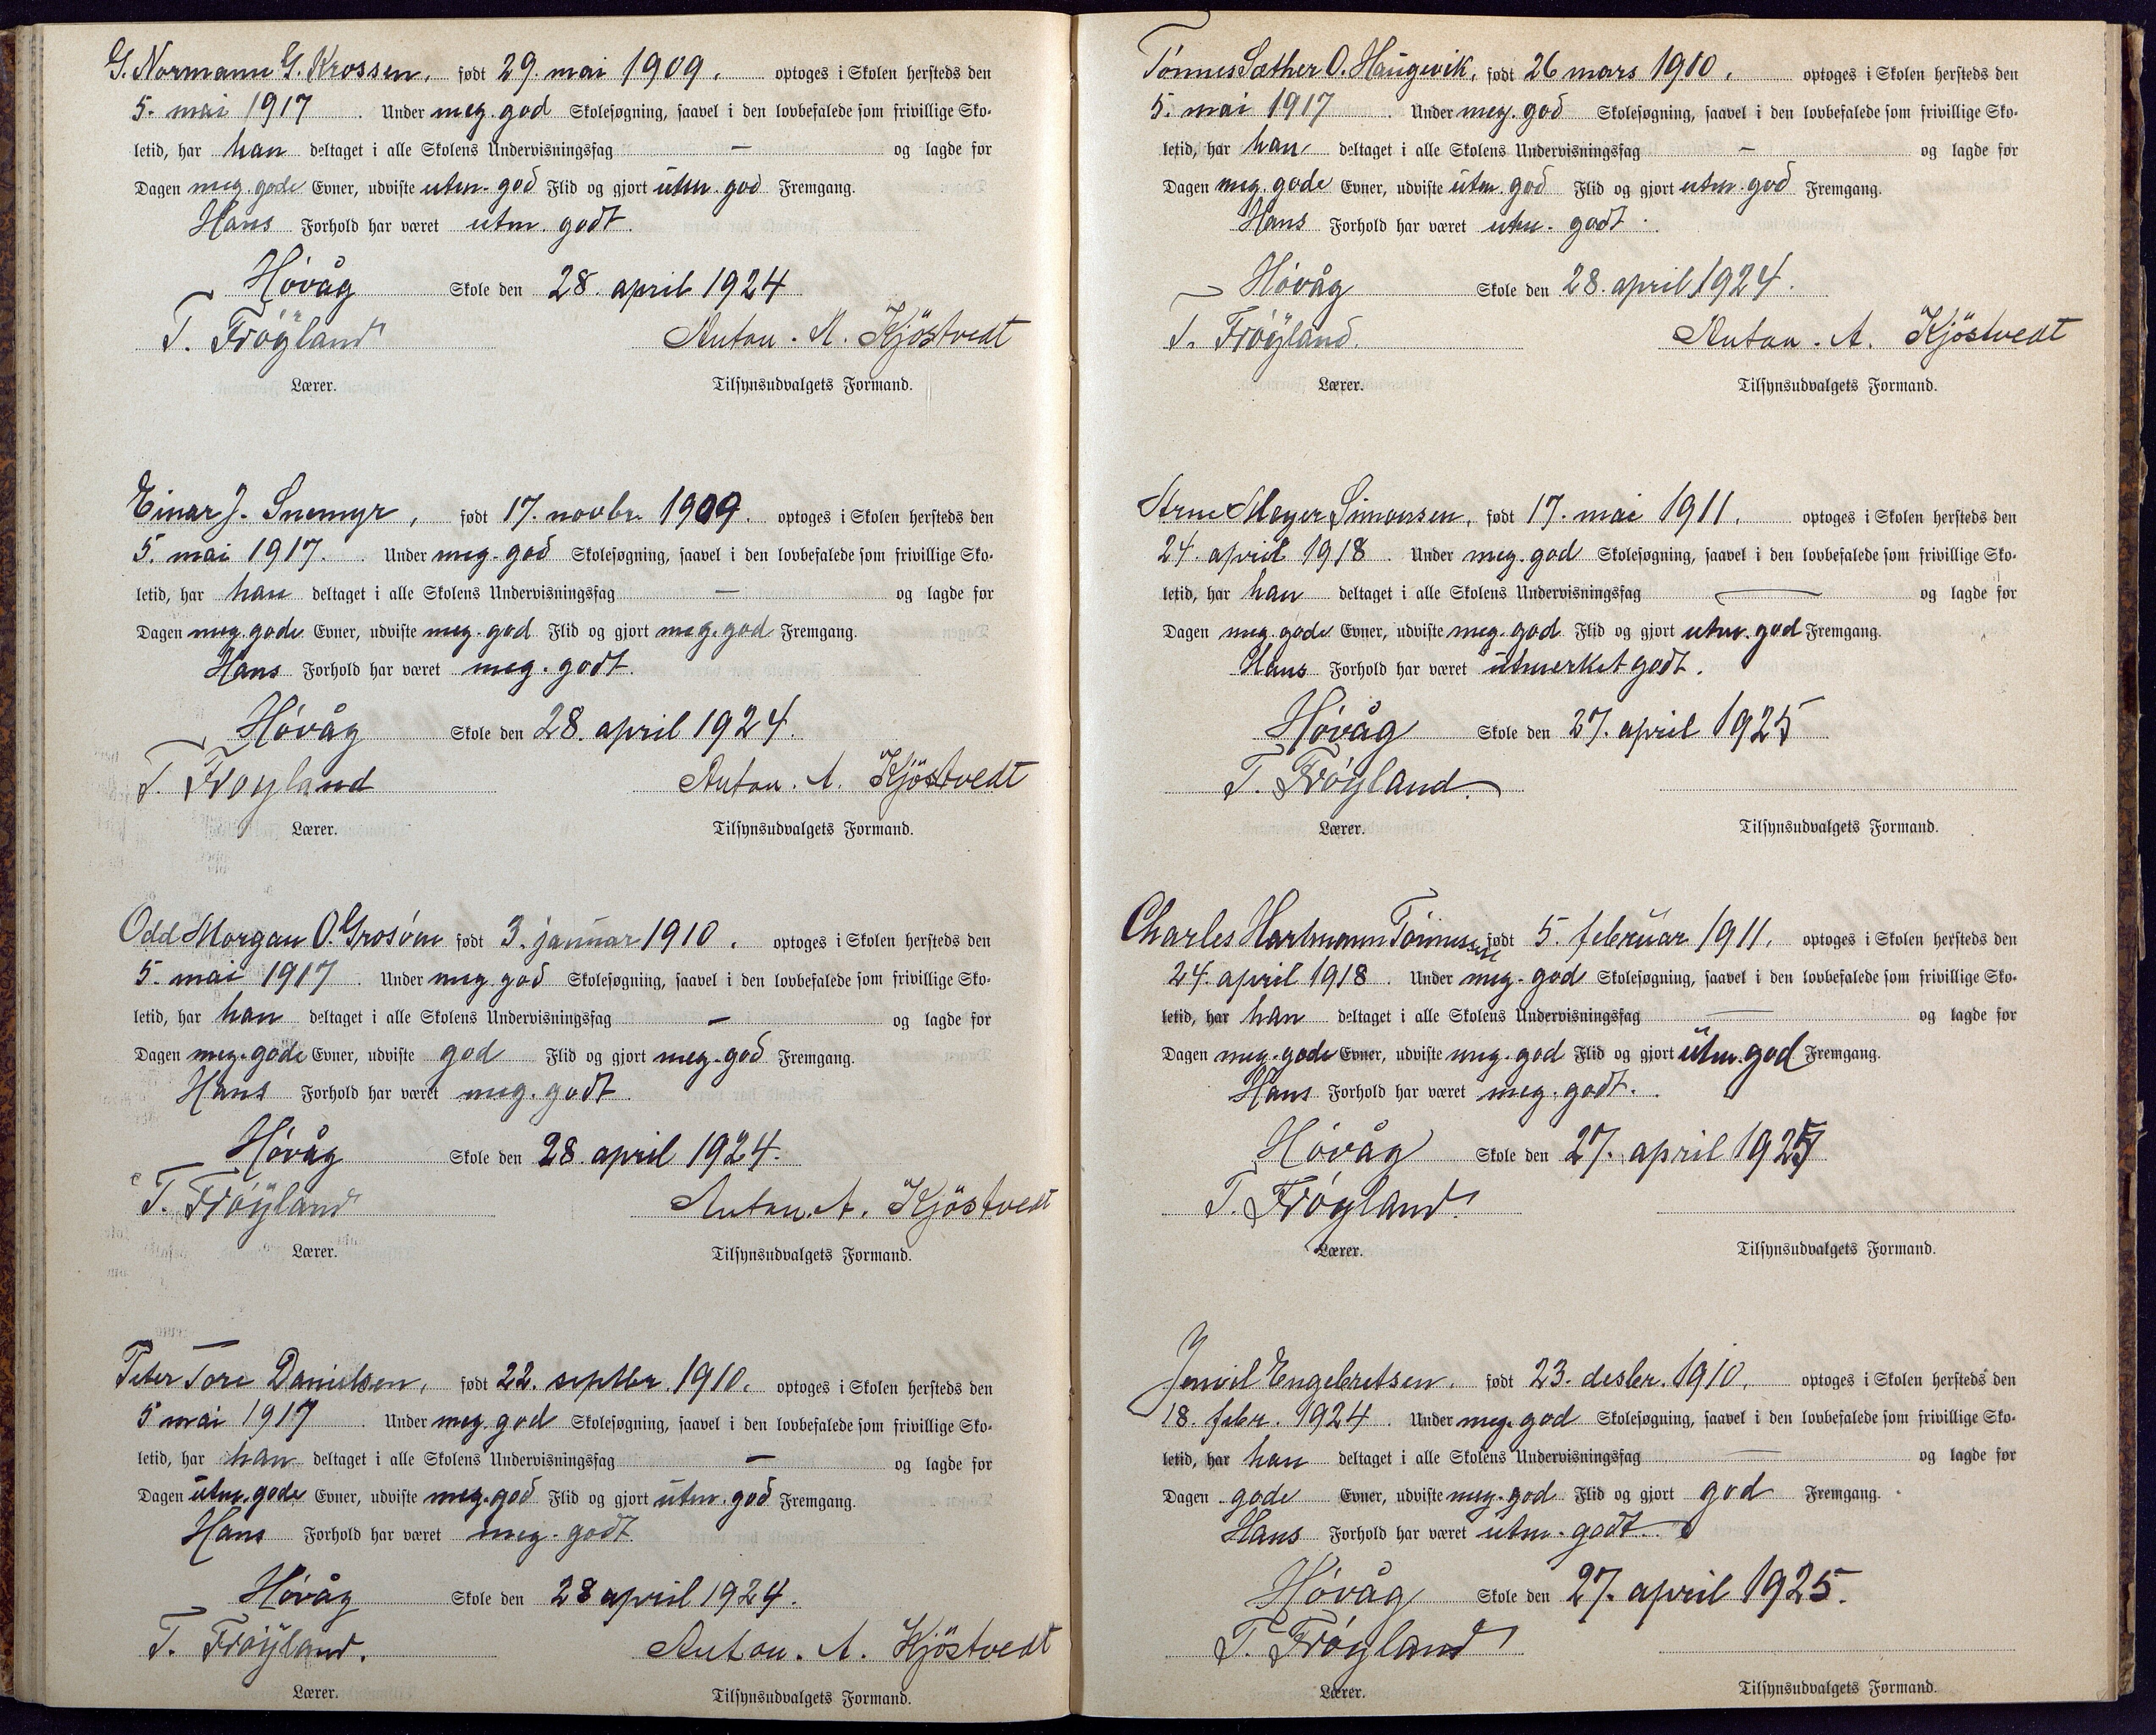 G. Normann G. Krossen, født 29. mai 1909. optoges i Skolen hersteds den
5. mai 1917. Under meg. god Skolesøgning, saavel i den lovbefalede som frivillige Sko-
letid, har han deltaget i alle Skolens Undervisningsfag — og lagde for
Dagen meg. gode Evner, udviste utm. god Flid og gjort utm. god Fremgang.
Hans Forhold har været utm. godt.
Høvåg Skole den 28. april 1924
T. Frøyland Anton. A. Kjöstvedt
Lærer. Tilsynsudvalgets Formand.
Einar J. Snemyr, født 17. novbr. 1909. optoges i Skolen hersteds den
5. mai 1917. Under meg. god Skolesøgning, saavel i den lovbefalede som frivillige Sko-
letid, har han deltaget i alle Skolens Undervisningsfag — og lagde for
Dagen meg. gode Evner, udviste meg. god Flid og gjort meg. god Fremgang.
Hans Forhold har været meg. godt.
Høvåg Skole den 28. april 1924.
T. Frøyland Anton. A. Kjöstvedt
Lærer. Tilsynsudvalgets Formand.
Odd Morgan O. Grosøm født 3. januar 1910. optoges i Skolen hersteds den
5. mai 1917. Under meg god Skolesøgning, saavel i den lovbefalede som frivillige Sko-
letid, har han deltaget i alle Skolens Undervisningsfag — og lagde for
Dagen meg. gode Evner, udviste god Flid og gjort meg. god Fremgang.
Hans Forhold har været meg. godt
Høvåg Skole den 28. april 1924.
T. Frøyland Anton. A. Kjöstvedt
Lærer. Tilsynsudvalgets Formand.
Peter Tore Danielsen, født 22. septbr. 1910. optoges i Skolen hersteds den
5 mai 1917. Under meg. god Skolesøgning, saavel i den lovbefalede som frivillige Sko-
letid, har han deltaget i alle Skolens Undervisningsfag — og lagde for
Dagen utm. gode Evner, udviste meg. god Flid og gjort utm. god Fremgang.
Hans Forhold har været meg. godt
Høvåg Skole den 28 april 1924.
T. Frøyland. Anton. A. Kjöstvedt
Lærer. Tilsynsudvalgets Formand.
Tønnes Sæther O. Haugevik, født 26 mars 1910. optoges i Skolen hersteds den
5. mai 1917. Under meg. god Skolesøgning, saavel i den lovbefalede som frivillige Sko-
letid, har han deltaget i alle Skolens Undervisningsfag — og lagde for
Dagen meg. gode Evner, udviste utm. god Flid og gjort utm. god Fremgang.
Hans Forhold har været utm. godt.
Høvåg Skole den 28. april 1924.
T. Frøyland. Anton. A. Kjöstvedt
Lærer. Tilsynsudvalgets Formand.
Arne Meyer Simonsen, født 17. mai 1911. optoges i Skolen hersteds den
24. april 1918. Under meg. god Skolesøgning, saavel i den lovbefalede som frivillige Sko-
letid, har han deltaget i alle Skolens Undervisningsfag — og lagde for
Dagen meg. gode Evner, udviste meg. god Flid og gjort utm. god Fremgang.
Hans Forhold har været utmerket godt.
Høvåg Skole den 27. april 1925
T. Frøyland.
Lærer. Tilsynsudvalgets Formand.
Charles Hartmann Tønnessen født 5. februar 1911. optoges i Skolen hersteds den
24. april 1918. Under meg. god Skolesøgning, saavel i den lovbefalede som frivillige Sko-
letid, har han deltaget i alle Skolens Undervisningsfag — og lagde for
Dagen meg. gode Evner, udviste meg. god Flid og gjort utm. god Fremgang.
Hans Forhold har været meg. godt.
Høvåg Skole den 27. april 1925
T. Frøyland.
Lærer. Tilsynsudvalgets Formand.
Engebretsen. født 23. desbr. 1910. optoges i Skolen hersteds den
18. febr. 1924. Under meg. god Skolesøgning, saavel i den lovbefalede som frivillige Sko-
letid, har han deltaget i alle Skolens Undervisningsfag — og lagde for
Dagen gode Evner, udviste meg. god Flid og gjort god Fremgang.
Hans Forhold har været utm. godt.
Høvåg Skole den 27. april 1925.
T. Frøyland
Lærer. Tilsynsudvalgets Formand.